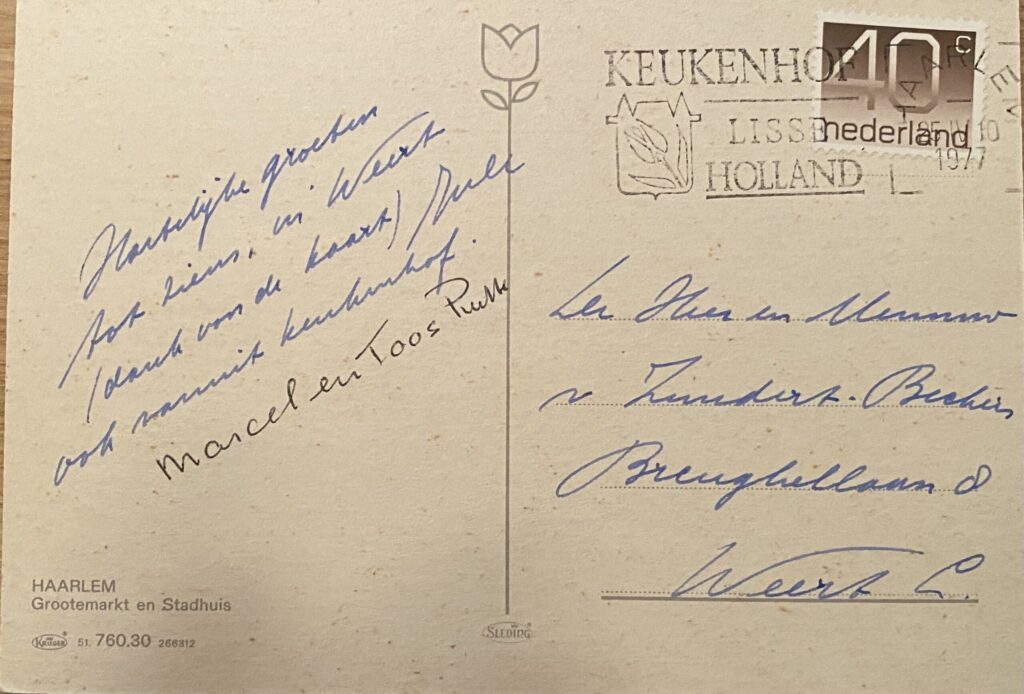 Hartelijke groeten
tot ziens, in Weert
(dank voor de kaart) Jull
ook vanuit keukenhof.
Marcel en Toos
HAARLEM
Grootemarkt en Stadhuis
KRÜGER 51. 760.30 266812
SLEDING
KEUKENHOF
LISSE
HOLLAND
40 c
nederland
HAARLEM
25 IV 10
1977
Den Heer en Mevrouw
v Zundert-Beckers
Breughellaan 8
Weert L.